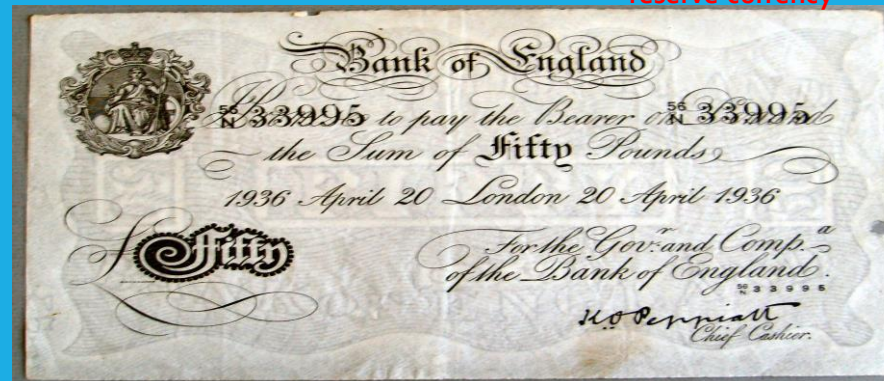 reserve currency
Bank of England
56 N 33995 56 N 33995
to pay the Bearer on
the Sum of Fifty Pounds
1936 April 20 London 20 April 1936
£ Fifty
For the Govr. and Compa.
of the Bank of England.
56 N 33995
K O Peppiatt
Chief Cashier.